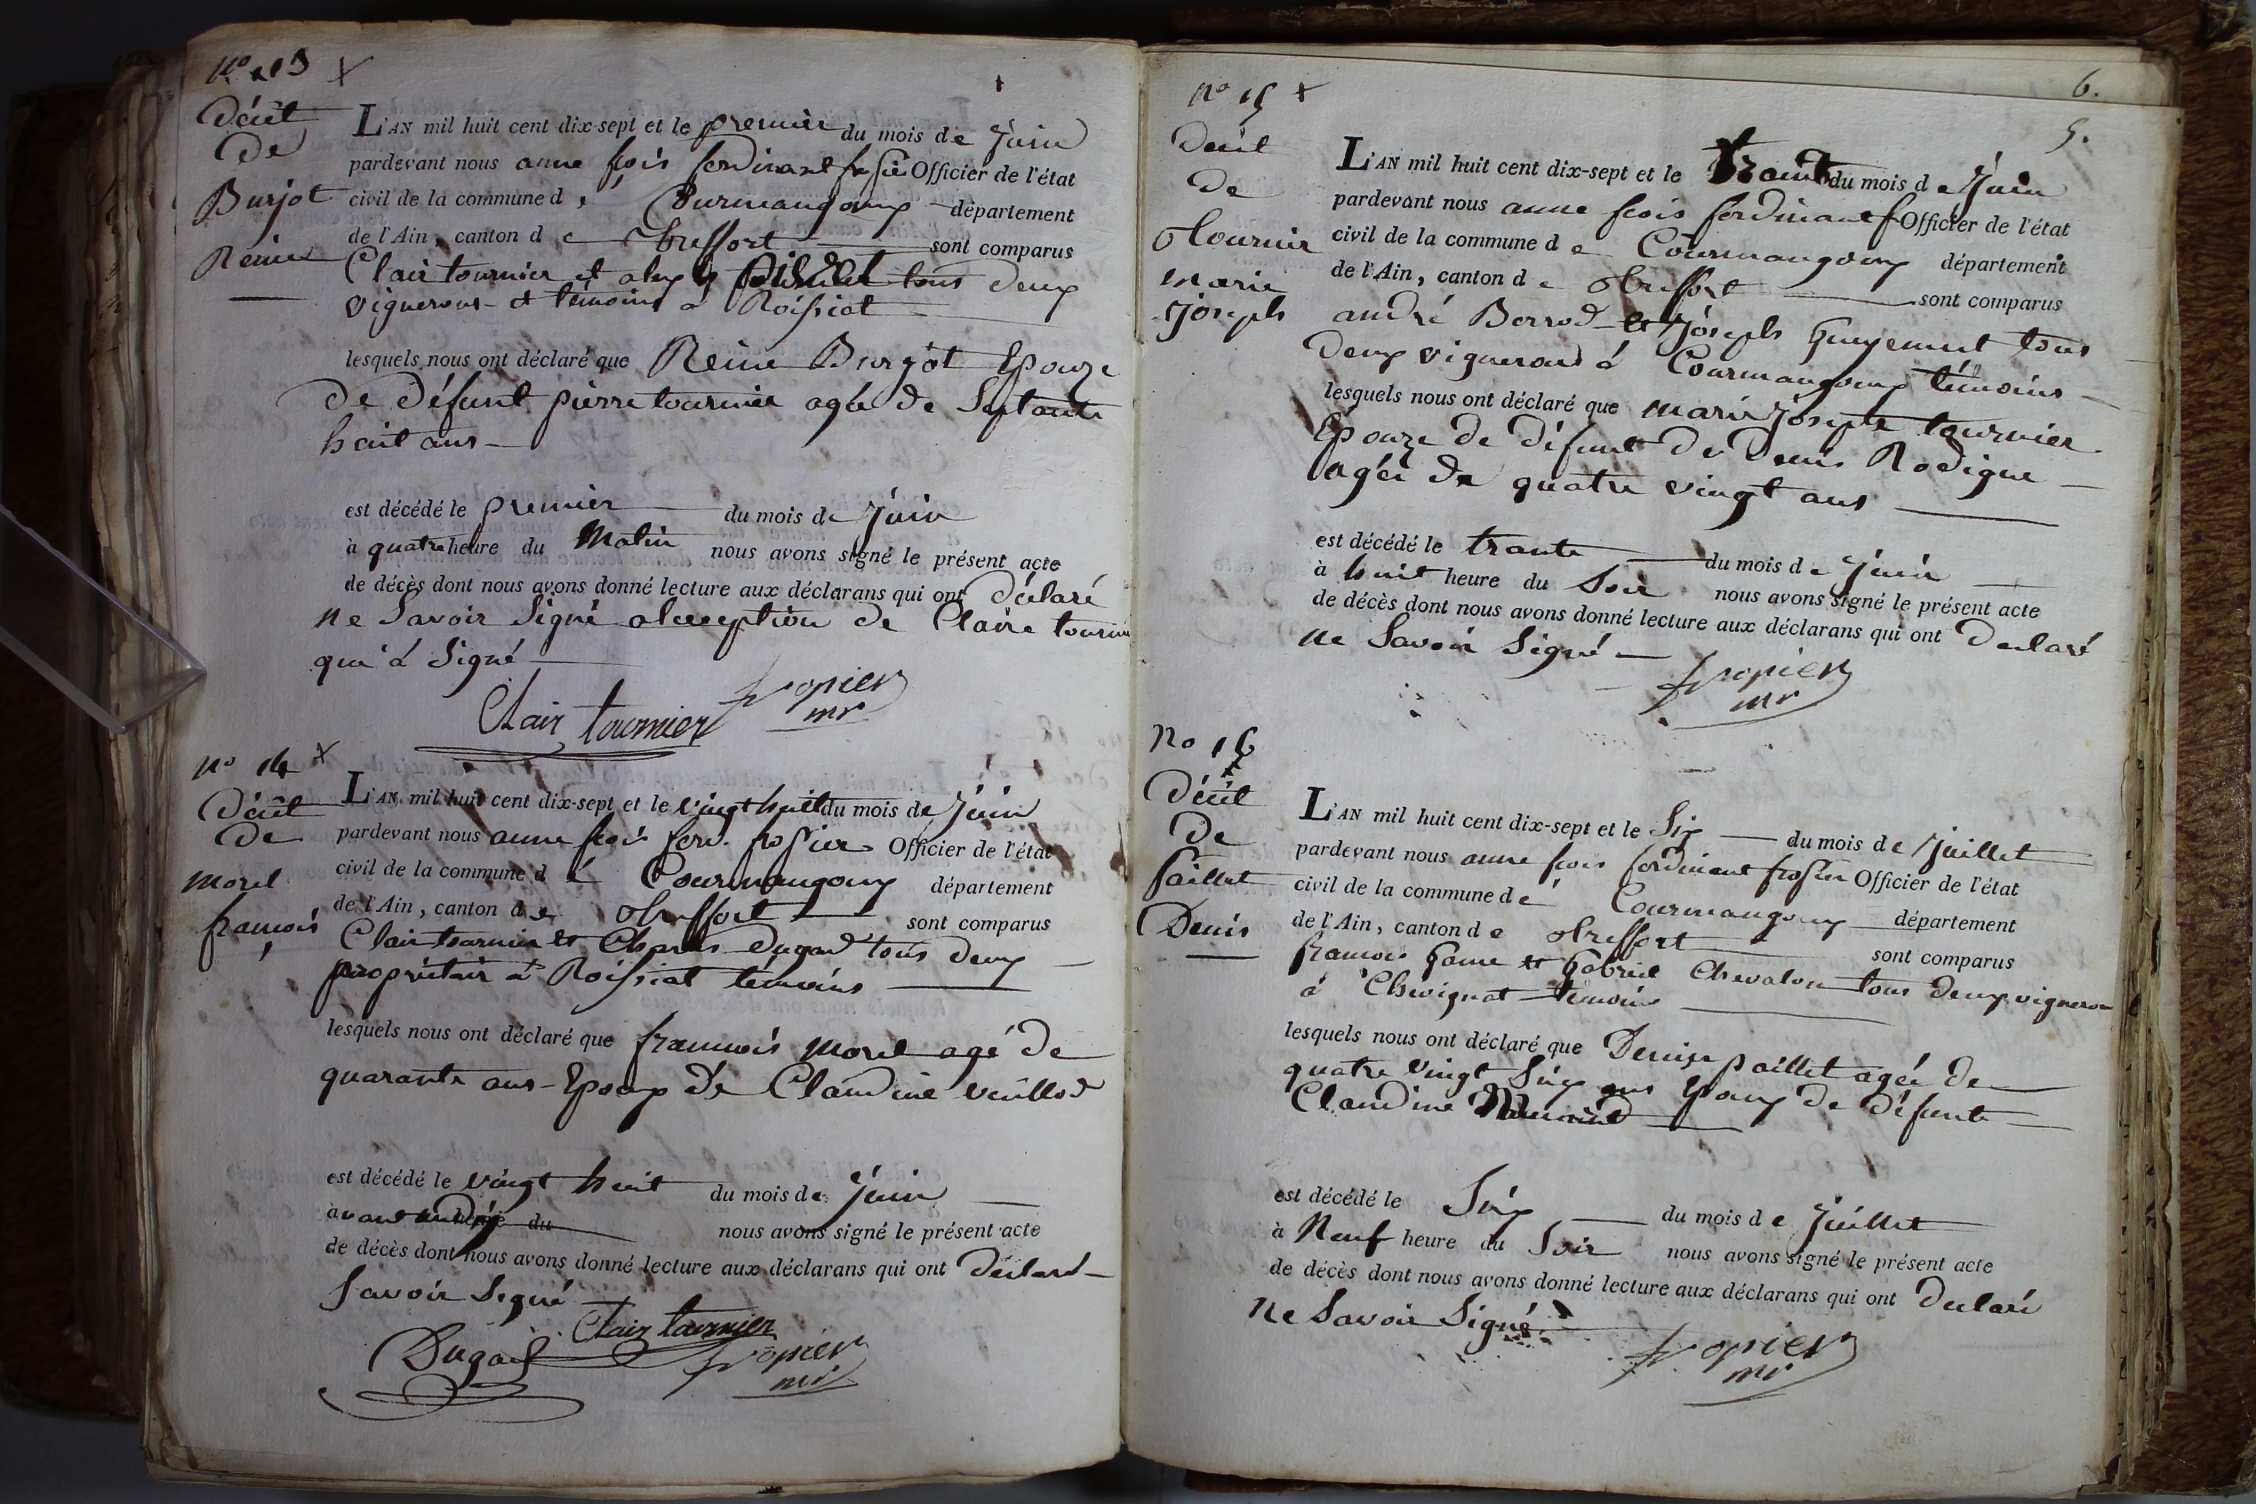 No 13 X
Décét
de
Burjot
Reine
L'AN mil huit cent dix-sept et le premier du mois de Juin
pardevant nous anne fçois ferdinant Officier de l'état
civil de la commune de Courmangoux département
de l'Ain, canton de treffort sont comparus
Clair tournier et tous deux
vignerons et témoins a Roissiat
lesquels nous ont déclaré que Reine Burjot Epouze
de défunt pierre tournier agée de Septante
huit ans
est décédé le premier du mois de Juin
à quatre heure du Matin nous avons signé le présent acte
de décès dont nous avons donné lecture aux déclarans qui ont déclaré
ne Savoir Signé alexeption de Claire tournier
qui á Signé
Clair tournier fropier
mr
No 14 X
Décét
de
Morel
franiois
L'AN mil huit cent dix-sept et le vingt huit du mois de Juin
pardevant nous anne fçois ferd. frossier Officier de l'état
civil de la commune de Courmangoux département
de l'Ain, canton de treffort sont comparus
Clair tournier et Charles dugad tous deux
propriétair à Roissiat temoins
lesquels nous ont déclaré que franniois Morel agé de
quarante ans Epoux de Claudine veuillod
est décédé le vingt huit du mois de Juin
à vant midy heure du nous avons signé le présent acte
de décès dont nous avons donné lecture aux déclarans qui ont déclaré
Savoir Signé
Clair tournier
Dugad fropier
mr
6.
5.
No 15 X
Décét
de
tournier
Marie
Joseph
L'AN mil huit cent dix-sept et le trante du mois de Juin
pardevant nous anne fçois ferdinant f Officier de l'état
civil de la commune de Courmangoux département
de l'Ain, canton de treffort sont comparus
andré Berrod et Joseph Guyennet tous
deux vignerons á Courmangoux témoins
lesquels nous ont déclaré que marie Joseph tournier
Epouze de défunt de Denis Rodigue
agée de quatre vingt ans
est décédé le trante du mois de Juin
à huit heure du Soir nous avons signé le présent acte
de décès dont nous avons donné lecture aux déclarans qui ont declaré
ne Savoir Signé
fropier
mr
No 16
X
Décét
de
paillet
Denis
L'AN mil huit cent dix-sept et le Six du mois de Juillet
pardevant nous anne fçois ferdinant frossier Officier de l'état
civil de la commune de Courmangoux département
de l'Ain, canton de treffort sont comparus
franiois Ganne et Gabriel Chevalon tous deux vigneron
á Chevignat témoins
lesquels nous ont déclaré que Denis paillet agée de
quatre vingt Six ans Epoux de défunte
Claudine
est décédé le Six du mois de Juillet
à Neuf heure du Soir nous avons signé le présent acte
de décès dont nous avons donné lecture aux déclarans qui ont declaré
ne Savoir Signé
fropier
mr